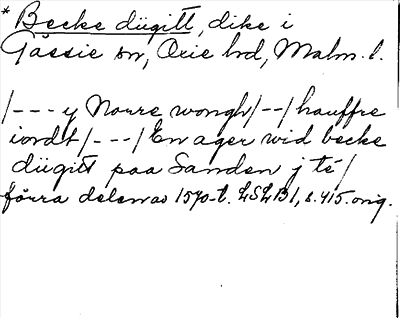 * Becke dügitt, dike i
Gässie sn, Oxie hd, Malm. l.
/--- y Norre wongh/--/hauffre
iordt/---/En ager wid becke
dügitt paa Sanden j té/
förra delen av 1570-t. LSLB1, s. 415. orig.